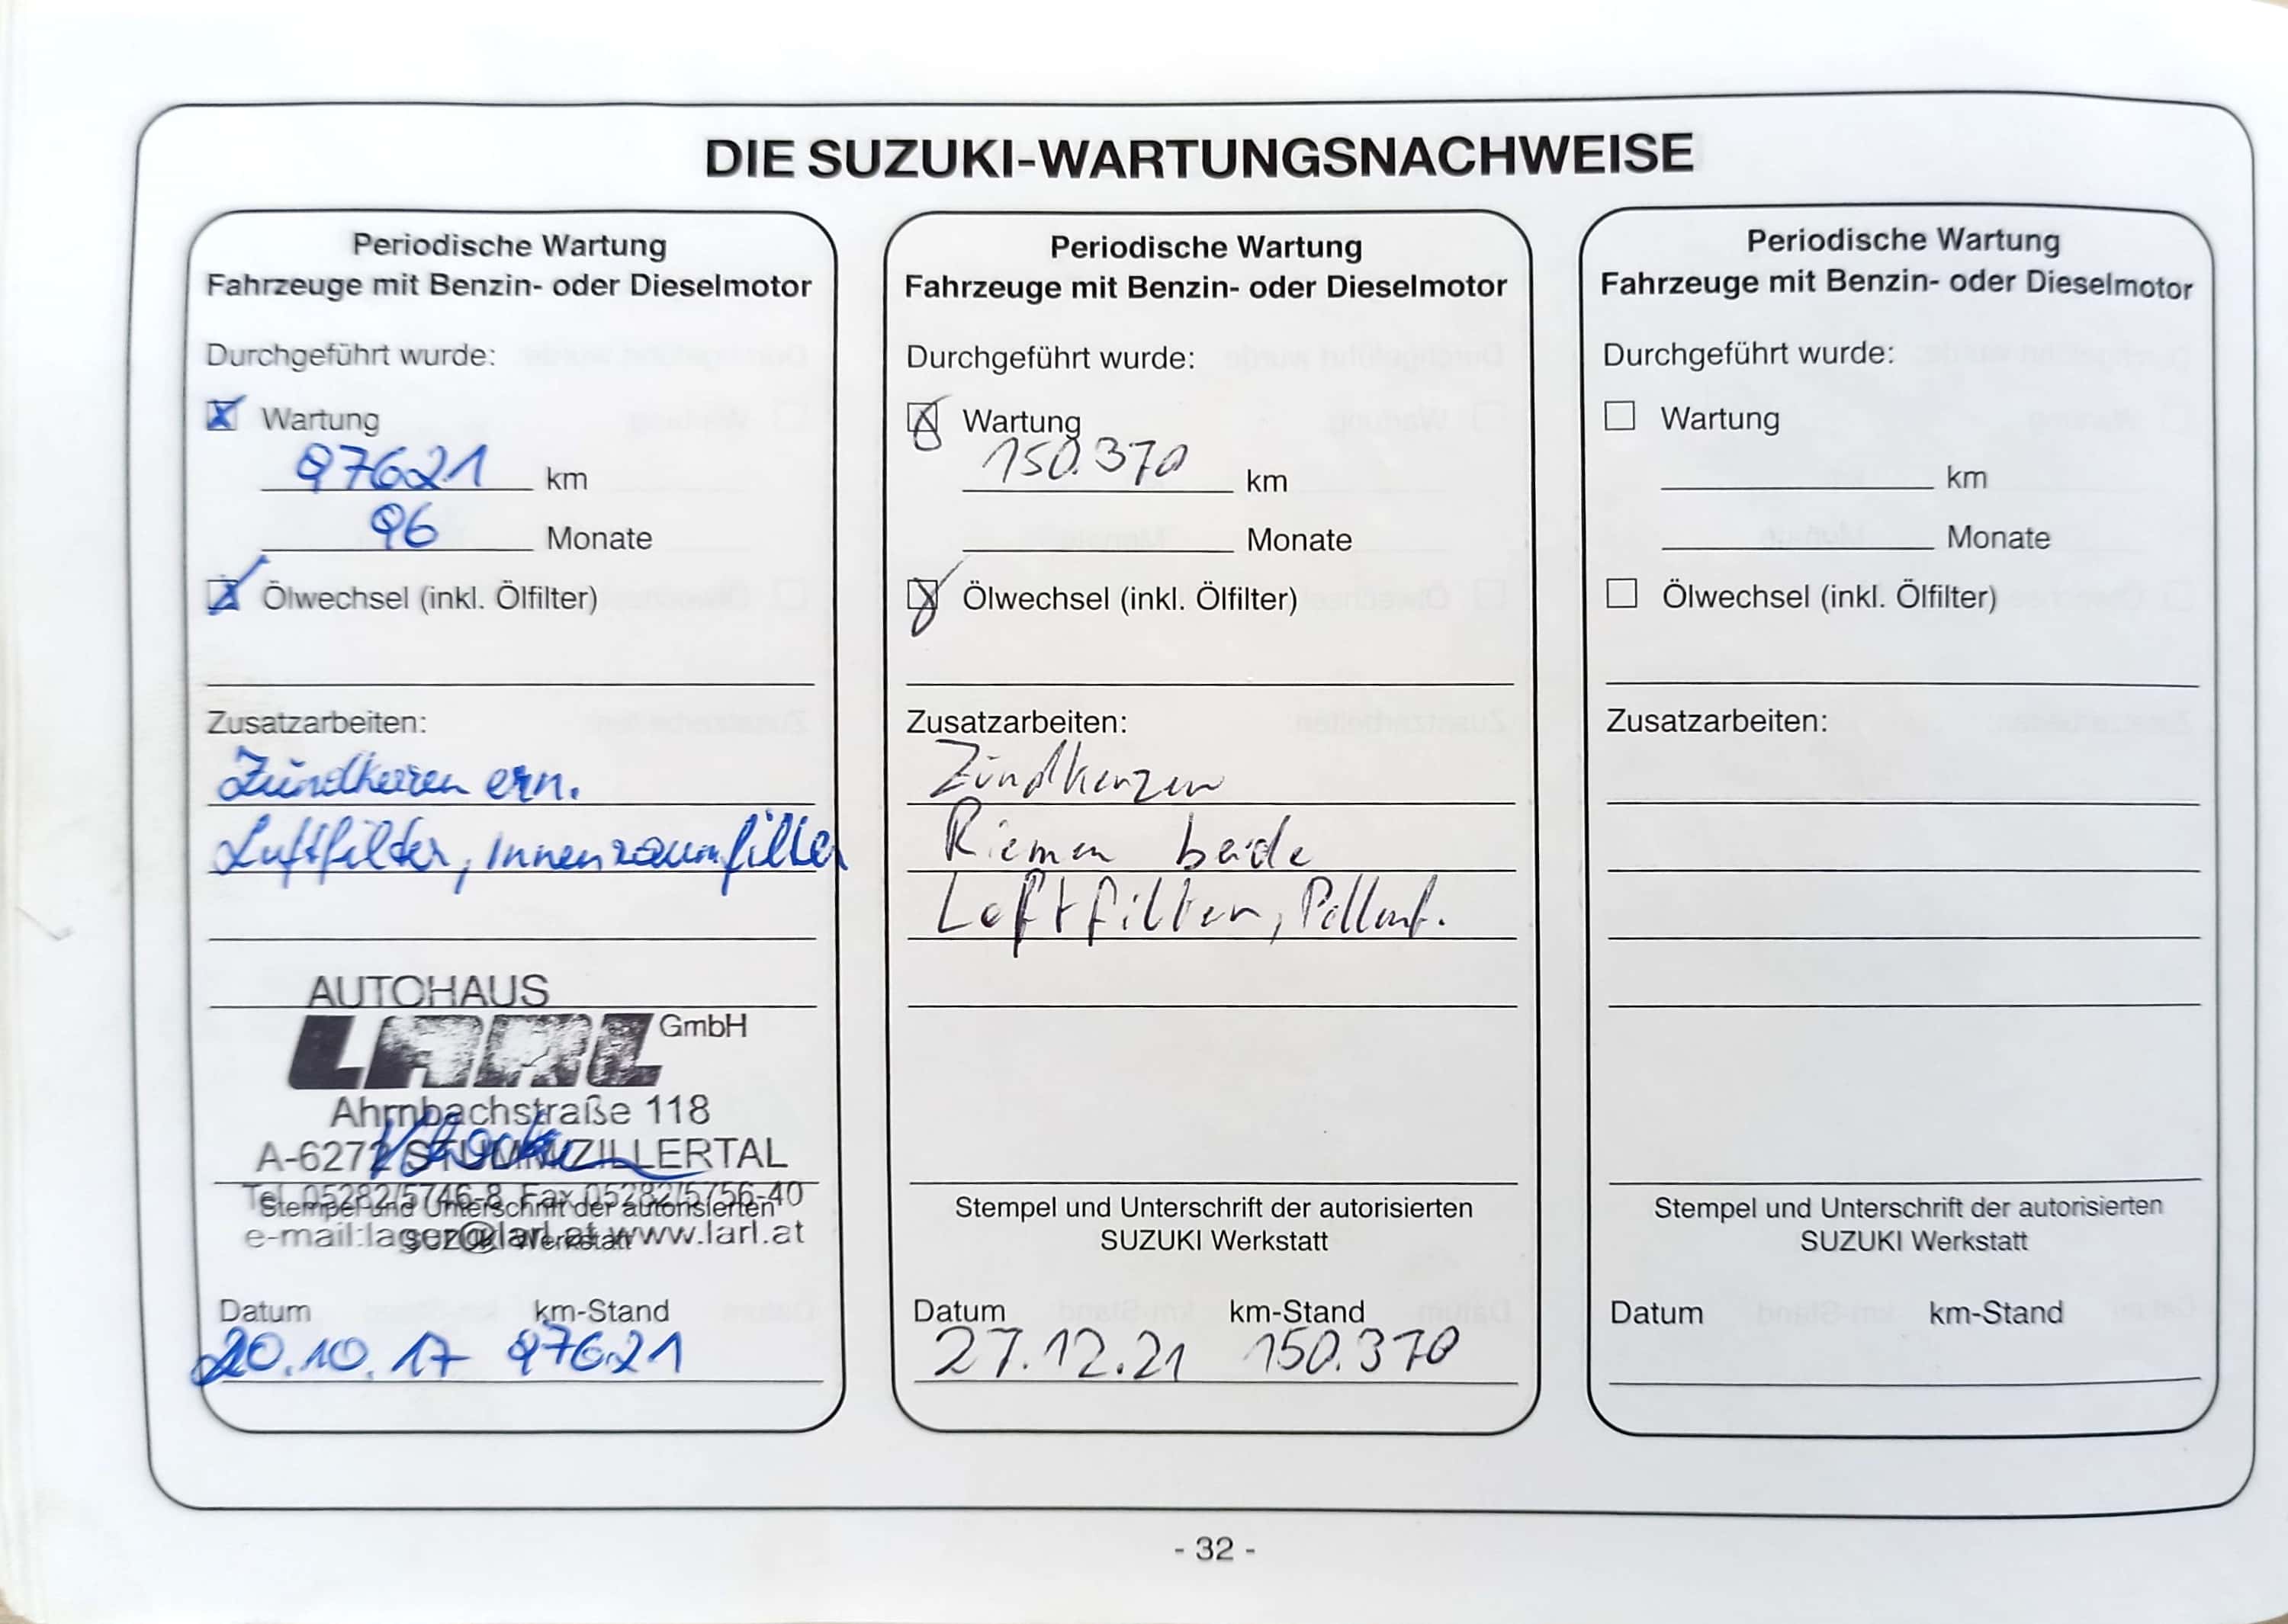 DIE SUZUKI-WARTUNGSNACHWEISE
Periodische Wartung
Fahrzeuge mit Benzin- oder Dieselmotor
Durchgeführt wurde:
Wartung
97621 km
96 Monate
Ölwechsel (inkl. Ölfilter)
Zusatzarbeiten:
Zündkerzen ern.
Luftfilter, Innenraumfilter
AUTOHAUS
LARL GmbH
Ahrnbachstraße 118
A-6272 STUMM/ZILLERTAL
Tel. 05282/5746-8 Fax 05282/5756-40
Stempel und Unterschrift der autorisierten
e-mail:lager@larl.at www.larl.at
SUZUKI Werkstatt
Datum km-Stand
20.10.17 97621
Periodische Wartung
Fahrzeuge mit Benzin- oder Dieselmotor
Durchgeführt wurde:
Wartung
150.370 km
Monate
Ölwechsel (inkl. Ölfilter)
Zusatzarbeiten:
Zündkerzen
Riemen beide
Luftfilter, Pollenf.
Stempel und Unterschrift der autorisierten
SUZUKI Werkstatt
Datum km-Stand
27.12.21 150.370
Periodische Wartung
Fahrzeuge mit Benzin- oder Dieselmotor
Durchgeführt wurde:
Wartung
km
Monate
Ölwechsel (inkl. Ölfilter)
Zusatzarbeiten:
Stempel und Unterschrift der autorisierten
SUZUKI Werkstatt
Datum km-Stand
- 32 -